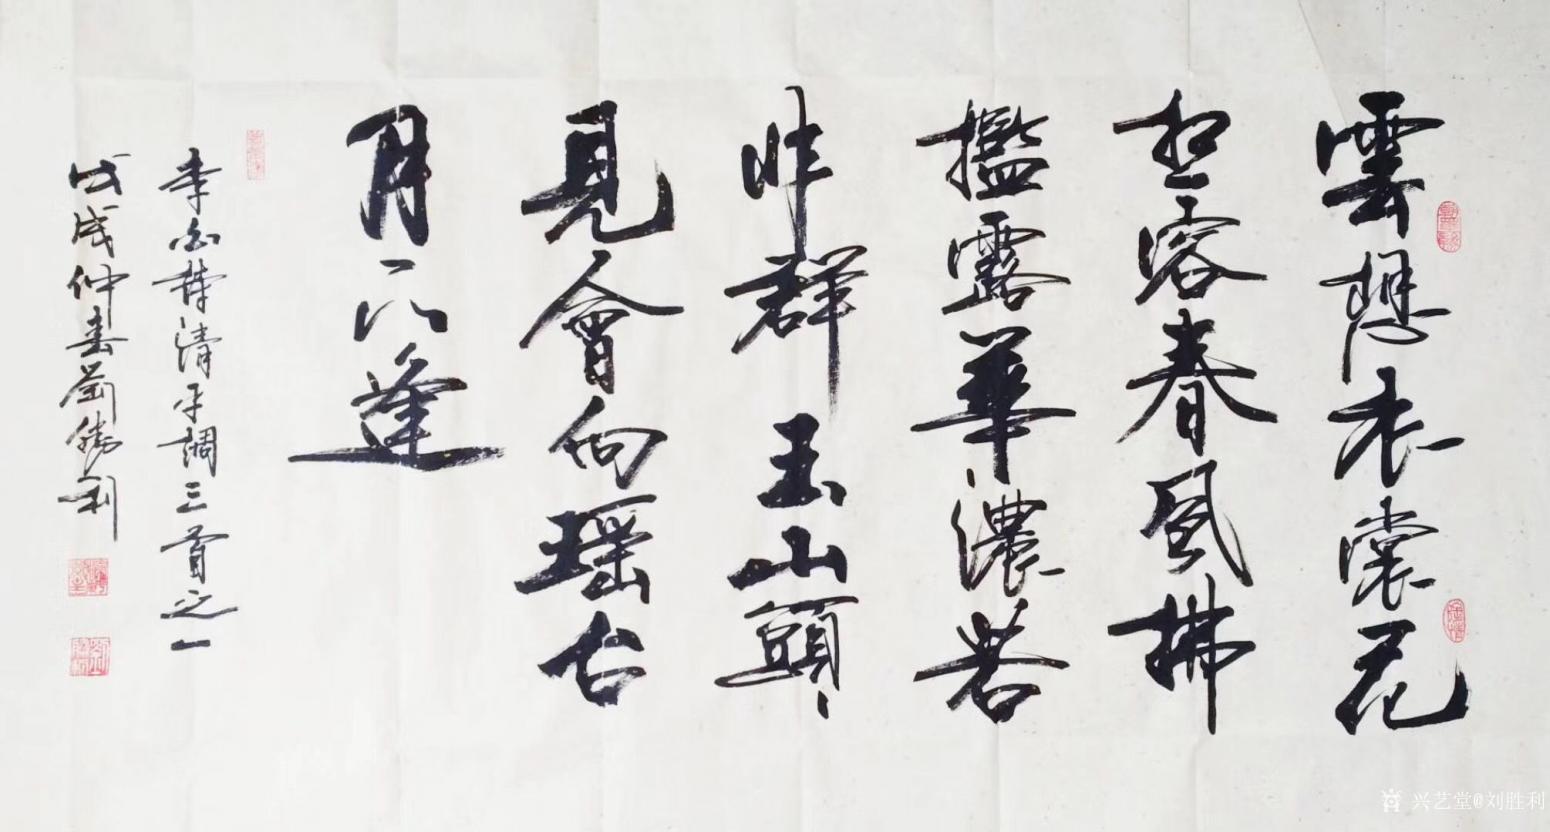 雲想衣裳花
想容春風拂
檻露華濃若
非群玉山頭
見會向瑶台
月下逢
李白詩清平調三首之一
戊戌仲春劉勝利
兴艺堂@刘胜利